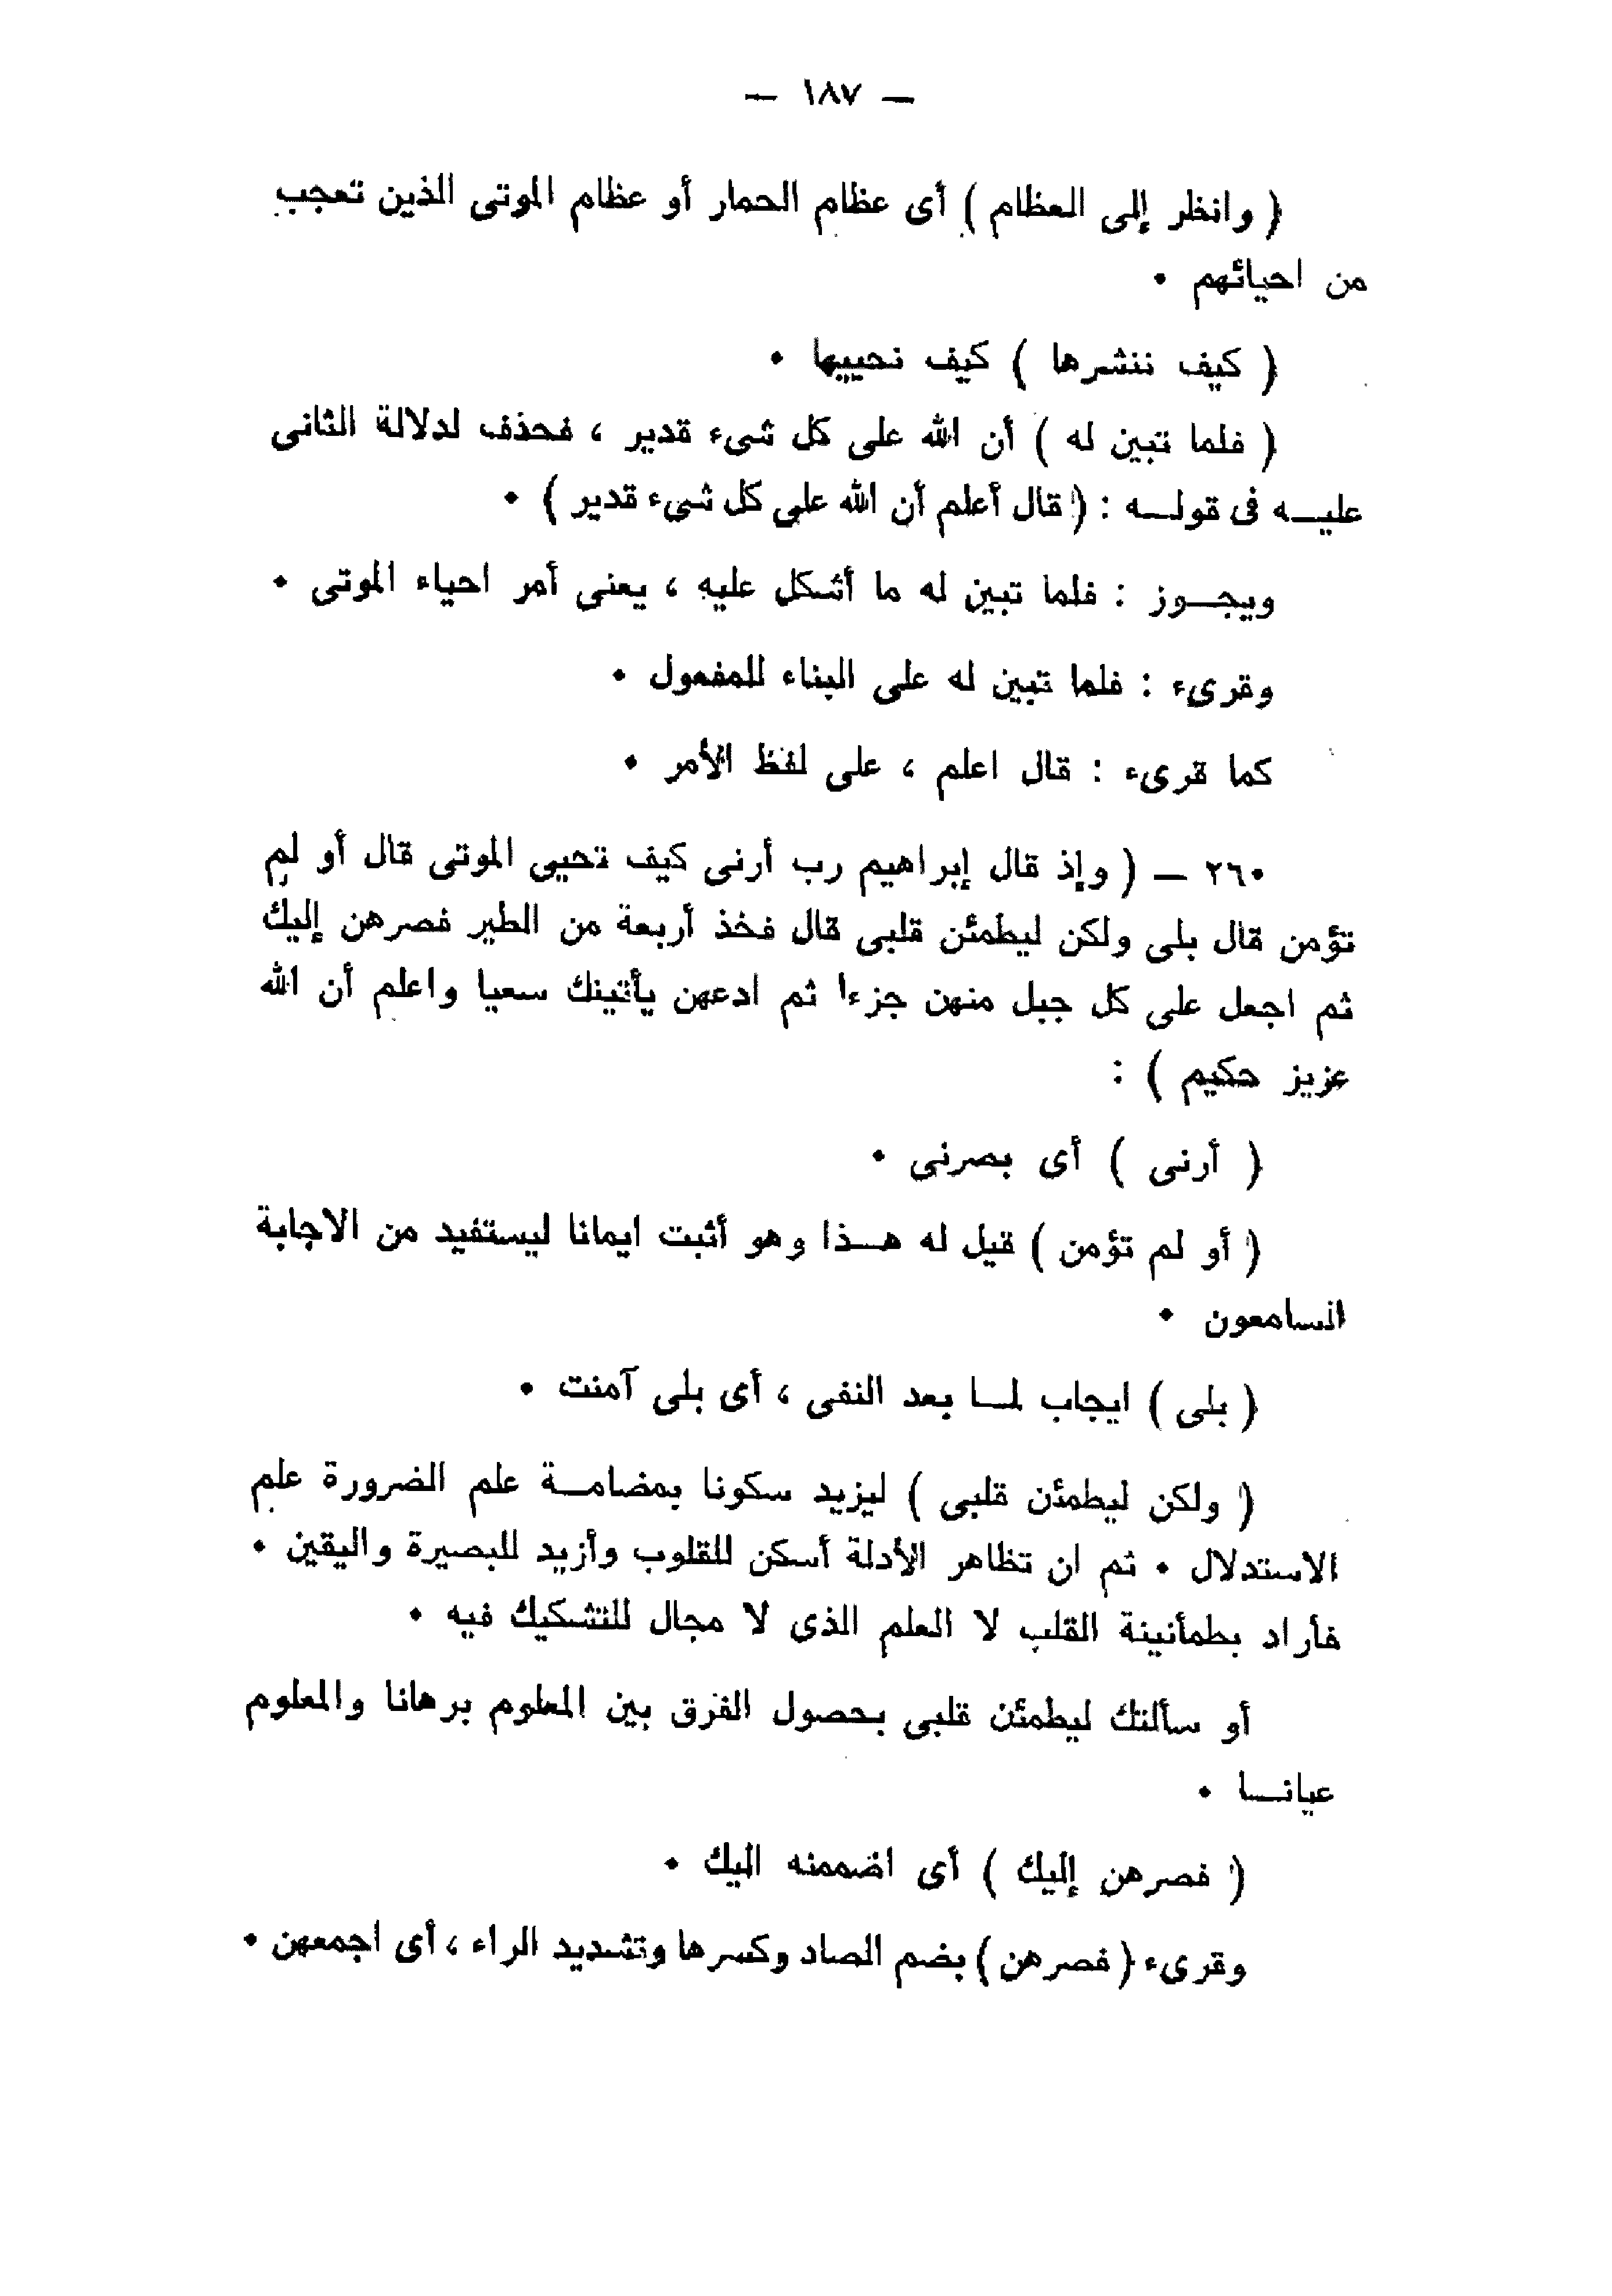 — ١٨٧ —
( وانظر إلى العظام ) أى عظام الحمار أو عظام الموتى الذين تعجب
من احيائهم ٠
( كيف ننشرها ) كيف نحييها ٠
( فلما تبين له ) أن الله على كل شىء قدير ، فحذف لدلالة الثانى
عليــه فى قولــه : ( قال أعلم أن الله على كل شىء قدير ) ٠
ويجــوز : فلما تبين له ما أشكل عليه ، يعنى أمر احياء الموتى ٠
وقرىء : فلما تبين له على البناء للمفعول ٠
كما قرىء : قال اعلم ، على لفظ الأمر ٠
٢٦٠ — ( وإذ قال إبراهيم رب أرنى كيف تحيى الموتى قال أو لم
تؤمن قال بلى ولكن ليطمئن قلبى قال فخذ أربعة من الطير فصرهن إليك
ثم اجعل على كل جبل منهن جزءا ثم ادعهن يأتينك سعيا واعلم أن الله
عزيز حكيم ) :
( أرنى ) أى بصرنى ٠
( أو لم تؤمن ) قيل له هــذا وهو أثبت ايمانا ليستفيد من الاجابة
السامعون ٠
( بلى ) ايجاب لمــا بعد النفى ، أى بلى آمنت ٠
( ولكن ليطمئن قلبى ) ليزيد سكونا بمضامــة علم الضرورة علم
الاستدلال ٠ ثم ان تظاهر الأدلة أسكن للقلوب وأزيد للبصيرة واليقين ٠
فأراد بطمأنينة القلب لا العلم الذى لا مجال للتشكيك فيه ٠
أو سألتك ليطمئن قلبى بحصول الفرق بين المعلوم برهانا والمعلوم
عيانــا ٠
( فصرهن إليك ) أى اضممنه اليك ٠
وقرىء ( فصرهن ) بضم الصاد وكسرها وتشديد الراء ، أى اجمعهن ٠